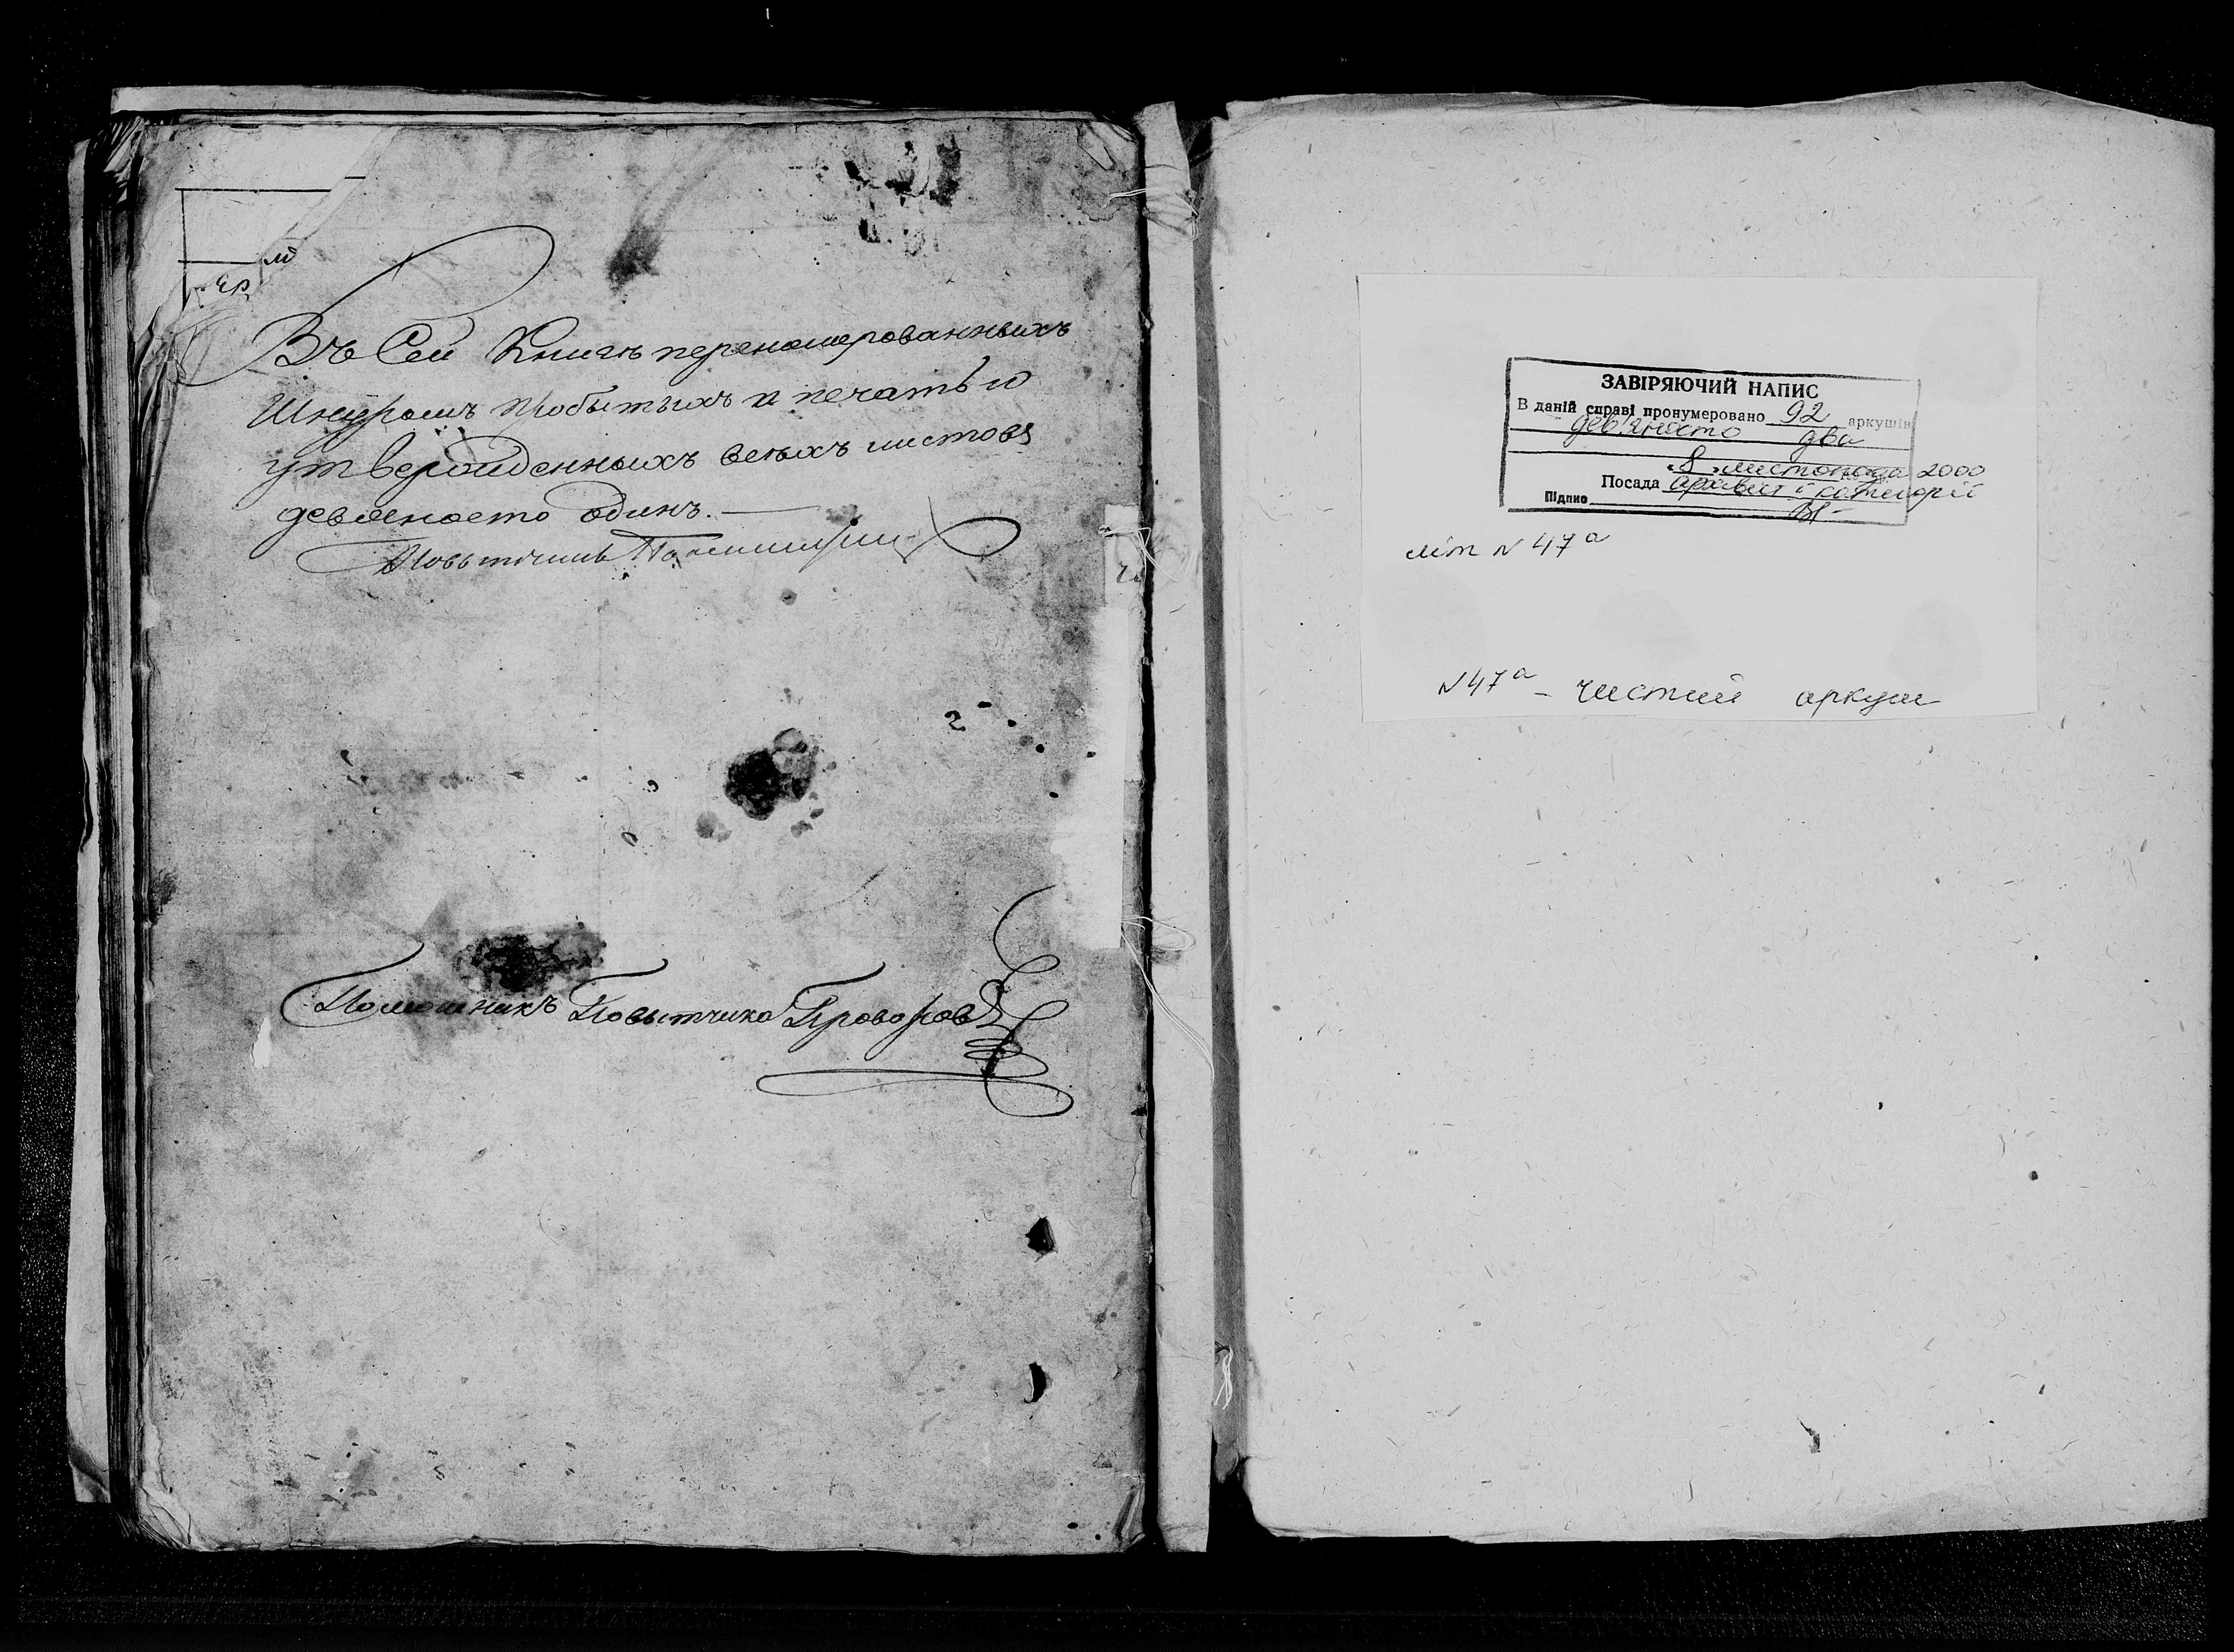 Въ Сей Книгѣ переномерованныхъ
Шнуромъ пробытыхъ и печатью
утвержденныхъ всѣхъ листовъ
девяносто одинъ.
Повытчикъ
Помошникъ Повытчика Проворовъ
ЗАВІРЯЮЧИЙ НАПИС
В даній справі пронумеровано 92 аркушів
дев'яносто два
8 листопада 2000
Посада архівіст I категорії
Підпис
літ N 47а
N47а - чистий аркуш